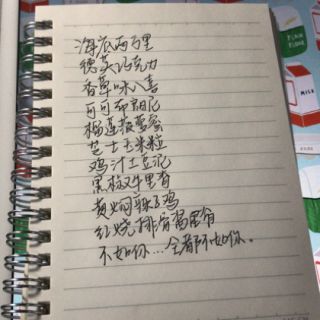 海底两万里
德芙巧克力
香草味八喜
可可布朗尼
榴莲菠萝蜜
芝士玉米粒
鸡汁土豆泥
黑椒牛里脊
黄焖辣子鸡
红烧排骨酱
不如你…全都不如你。
MILK